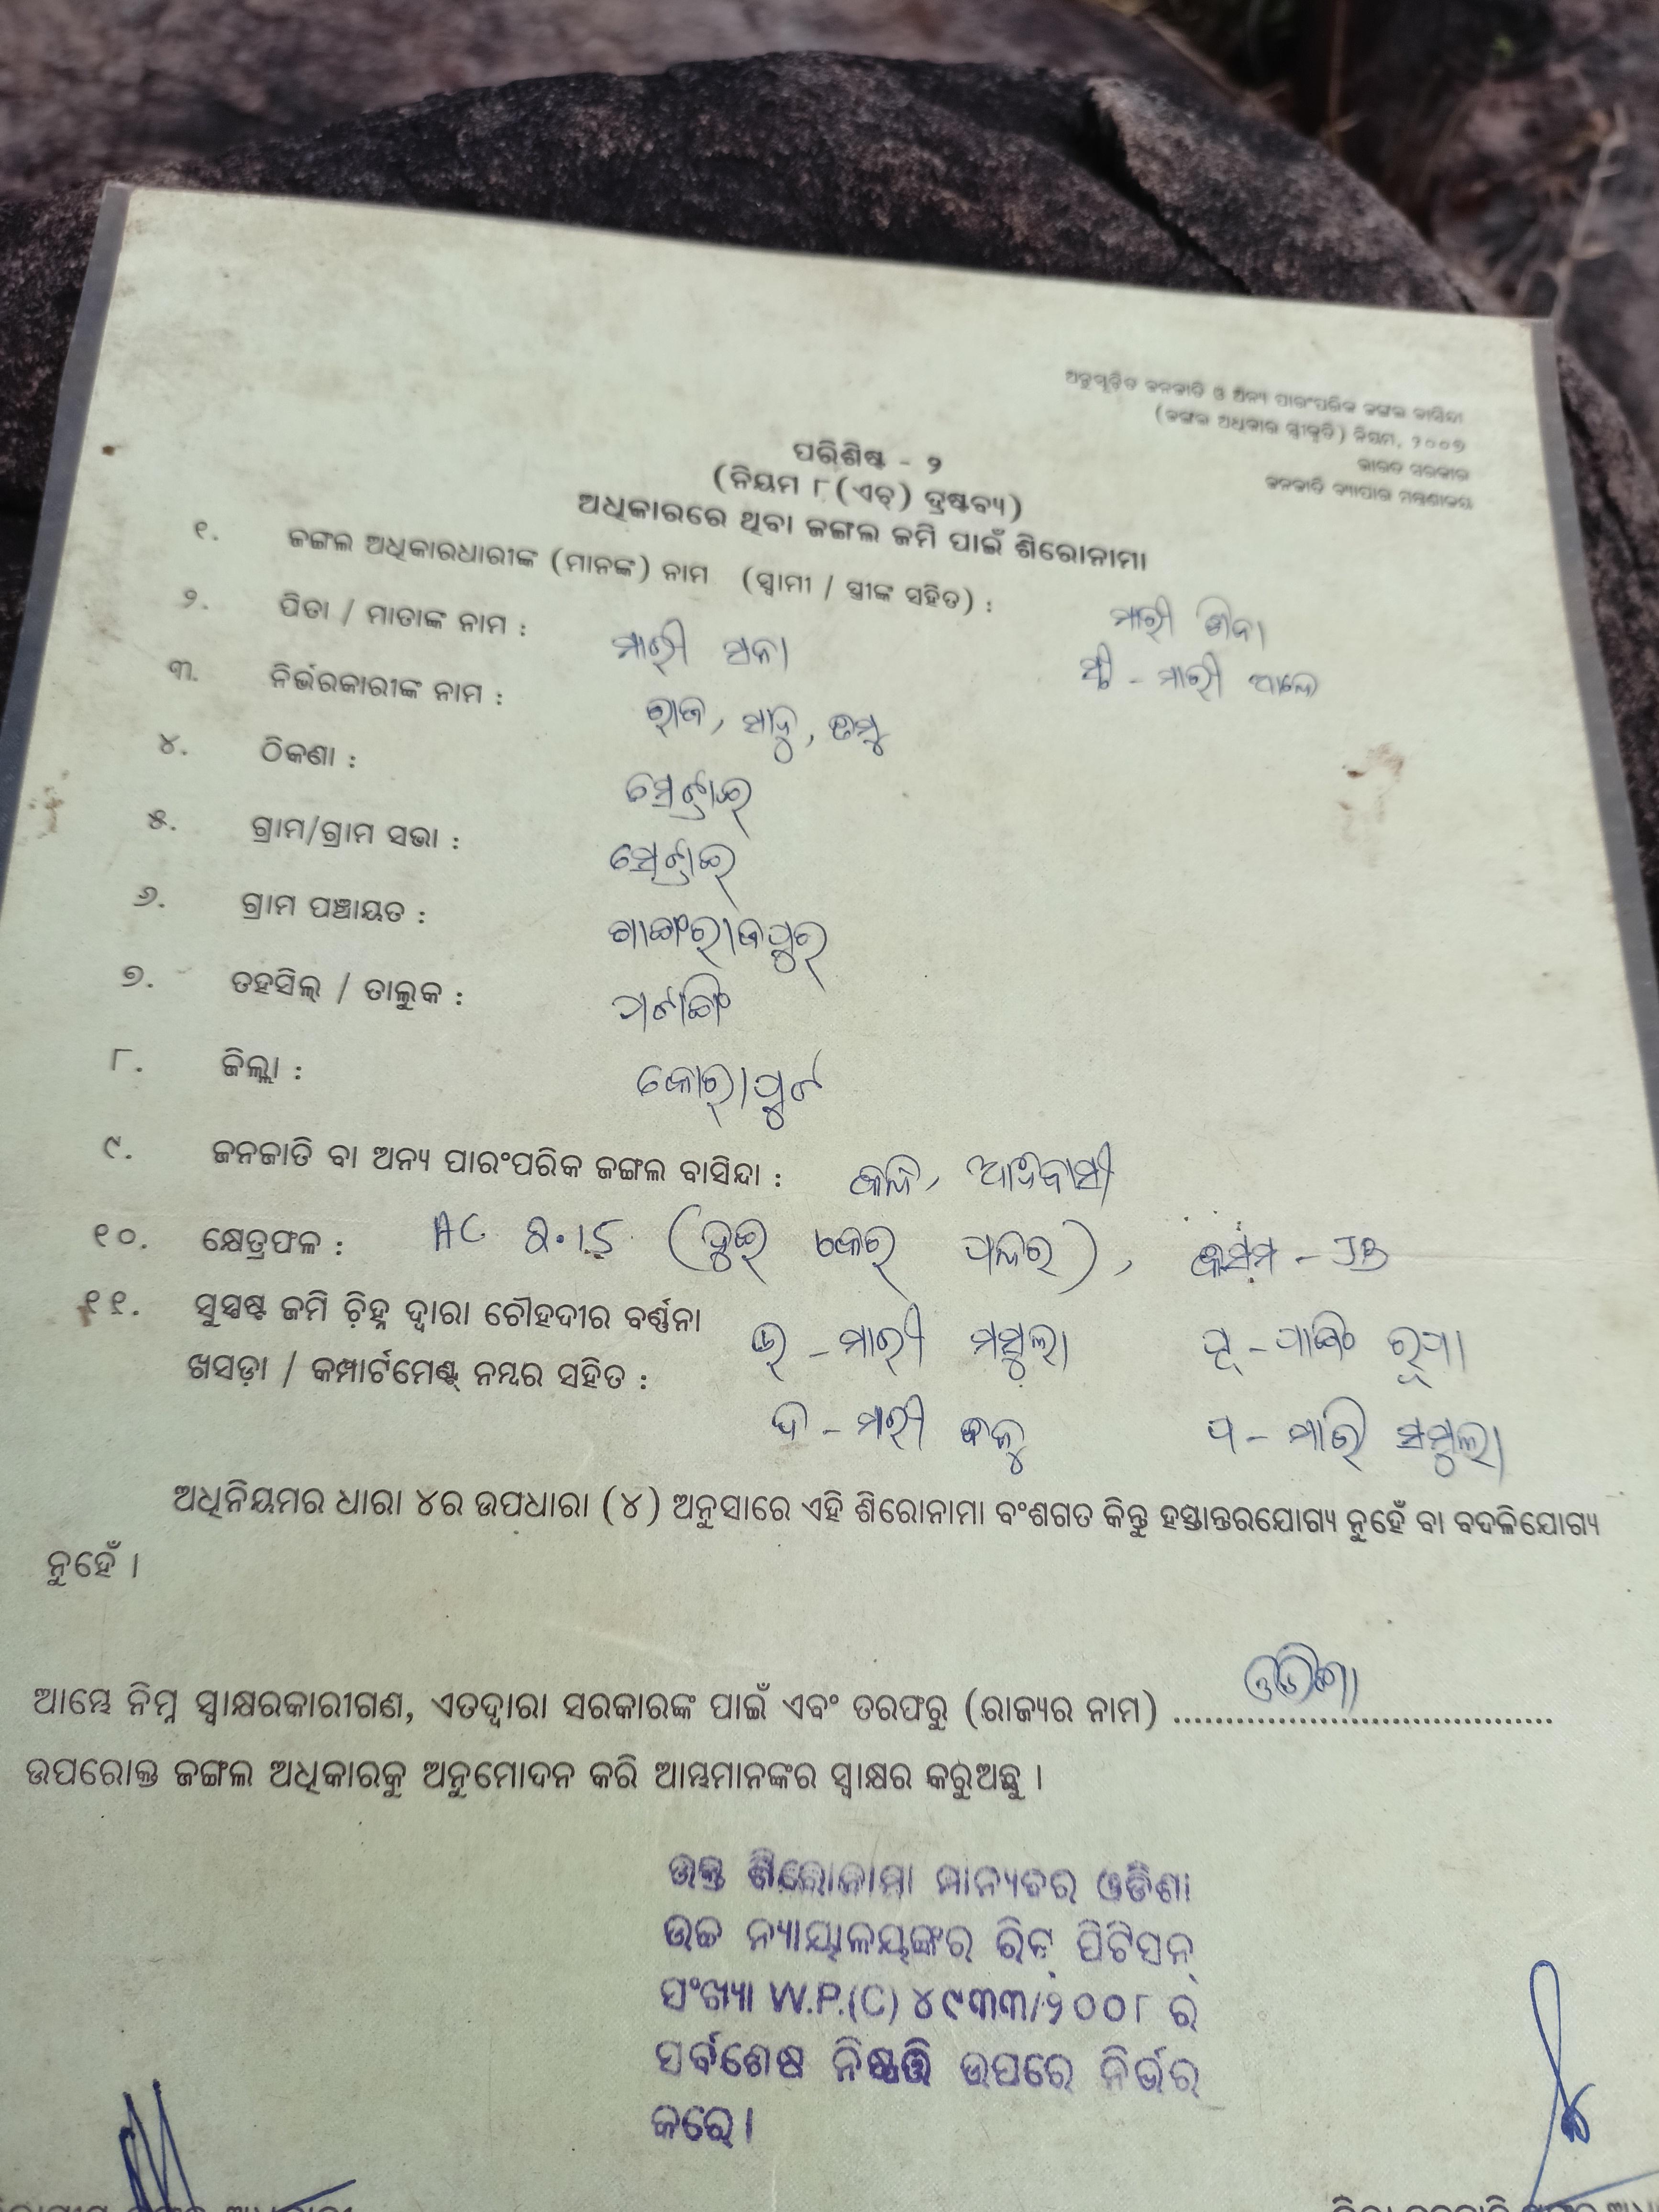 ଅନୁସୂଚିତ ଜନଜାତି ଓ ଅନ୍ୟ ପାରଂପରିକ ଜଙ୍ଗଲ ବାସିନ୍ଦା
(ଜଙ୍ଗଲ ଅଧିକାର ସ୍ୱୀକୃତି) ନିୟମ, ୨୦୦୭
ଭାରତ ସରକାର
ଜନଜାତି ବ୍ୟାପାର ମନ୍ତ୍ରଣାଳୟ
ପରିଶିଷ୍ଟ - ୨
(ନିୟମ ୮(ଏଚ୍) ଦ୍ରଷ୍ଟବ୍ୟ)
ଅଧିକାରରେ ଥିବା ଜଙ୍ଗଲ ଜମି ପାଇଁ ଶିରୋନାମା
୧. ଜଙ୍ଗଲ ଅଧିକାରଧାରୀଙ୍କ (ମାନଙ୍କ) ନାମ (ସ୍ୱାମୀ / ସ୍ତ୍ରୀଙ୍କ ସହିତ) : ମାରୀ
ସ୍ତ୍ରୀ - ମାରୀ
୨. ପିତା / ମାତାଙ୍କ ନାମ : ମାରୀ
୩. ନିର୍ଭରକାରୀଙ୍କ ନାମ :
୪. ଠିକଣା :
୫. ଗ୍ରାମ/ଗ୍ରାମ ସଭା :
୬. ଗ୍ରାମ ପଞ୍ଚାୟତ :
୭. ତହସିଲ୍ / ତାଲୁକ : ପଟାଙ୍ଗି
୮. ଜିଲ୍ଲା : କୋରାପୁଟ
୯. ଜନଜାତି ବା ଅନ୍ୟ ପାରଂପରିକ ଜଙ୍ଗଲ ବାସିନ୍ଦା : ଆଦିବାସୀ
୧୦. କ୍ଷେତ୍ରଫଳ : AC 2.15 (ଦୁଇ ପନ୍ଦର), କିସମ
୧୧. ସୁସ୍ପଷ୍ଟ ଜମି ଚିହ୍ନ ଦ୍ୱାରା ଚୌହଦୀର ବର୍ଣ୍ଣନା ଉ - ମାରୀ ପୂ -
ଖସଡ଼ା / କମ୍ପାର୍ଟମେଣ୍ଟ୍ ନମ୍ବର ସହିତ : ଦ - ମାରୀ ପ - ମାରି
ଅଧିନିୟମର ଧାରା ୪ର ଉପଧାରା (୪) ଅନୁସାରେ ଏହି ଶିରୋନାମା ବଂଶଗତ କିନ୍ତୁ ହସ୍ତାନ୍ତରଯୋଗ୍ୟ ନୁହେଁ ବା ବଦଳିଯୋଗ୍ୟ
ନୁହେଁ ।
ଆମ୍ଭେ ନିମ୍ନ ସ୍ୱାକ୍ଷରକାରୀଗଣ, ଏତଦ୍ୱାରା ସରକାରଙ୍କ ପାଇଁ ଏବଂ ତରଫରୁ (ରାଜ୍ୟର ନାମ) ଓଡିଶା
ଉପରୋକ୍ତ ଜଙ୍ଗଲ ଅଧିକାରକୁ ଅନୁମୋଦନ କରି ଆମ୍ଭମାନଙ୍କର ସ୍ୱାକ୍ଷର କରୁଅଛୁ ।
ଉକ୍ତ ଶିରୋନାମା ମାନ୍ୟବର ଓଡିଶା
ଉଚ୍ଚ ନ୍ୟାୟାଳୟଙ୍କର ରିଟ୍ ପିଟିସନ୍
ସଂଖ୍ୟା W.P.(C) ୪୯୩୩/୨୦୦୮ ର
ସର୍ବଶେଷ ନିଷ୍ପତ୍ତି ଉପରେ ନିର୍ଭର
କରେ।